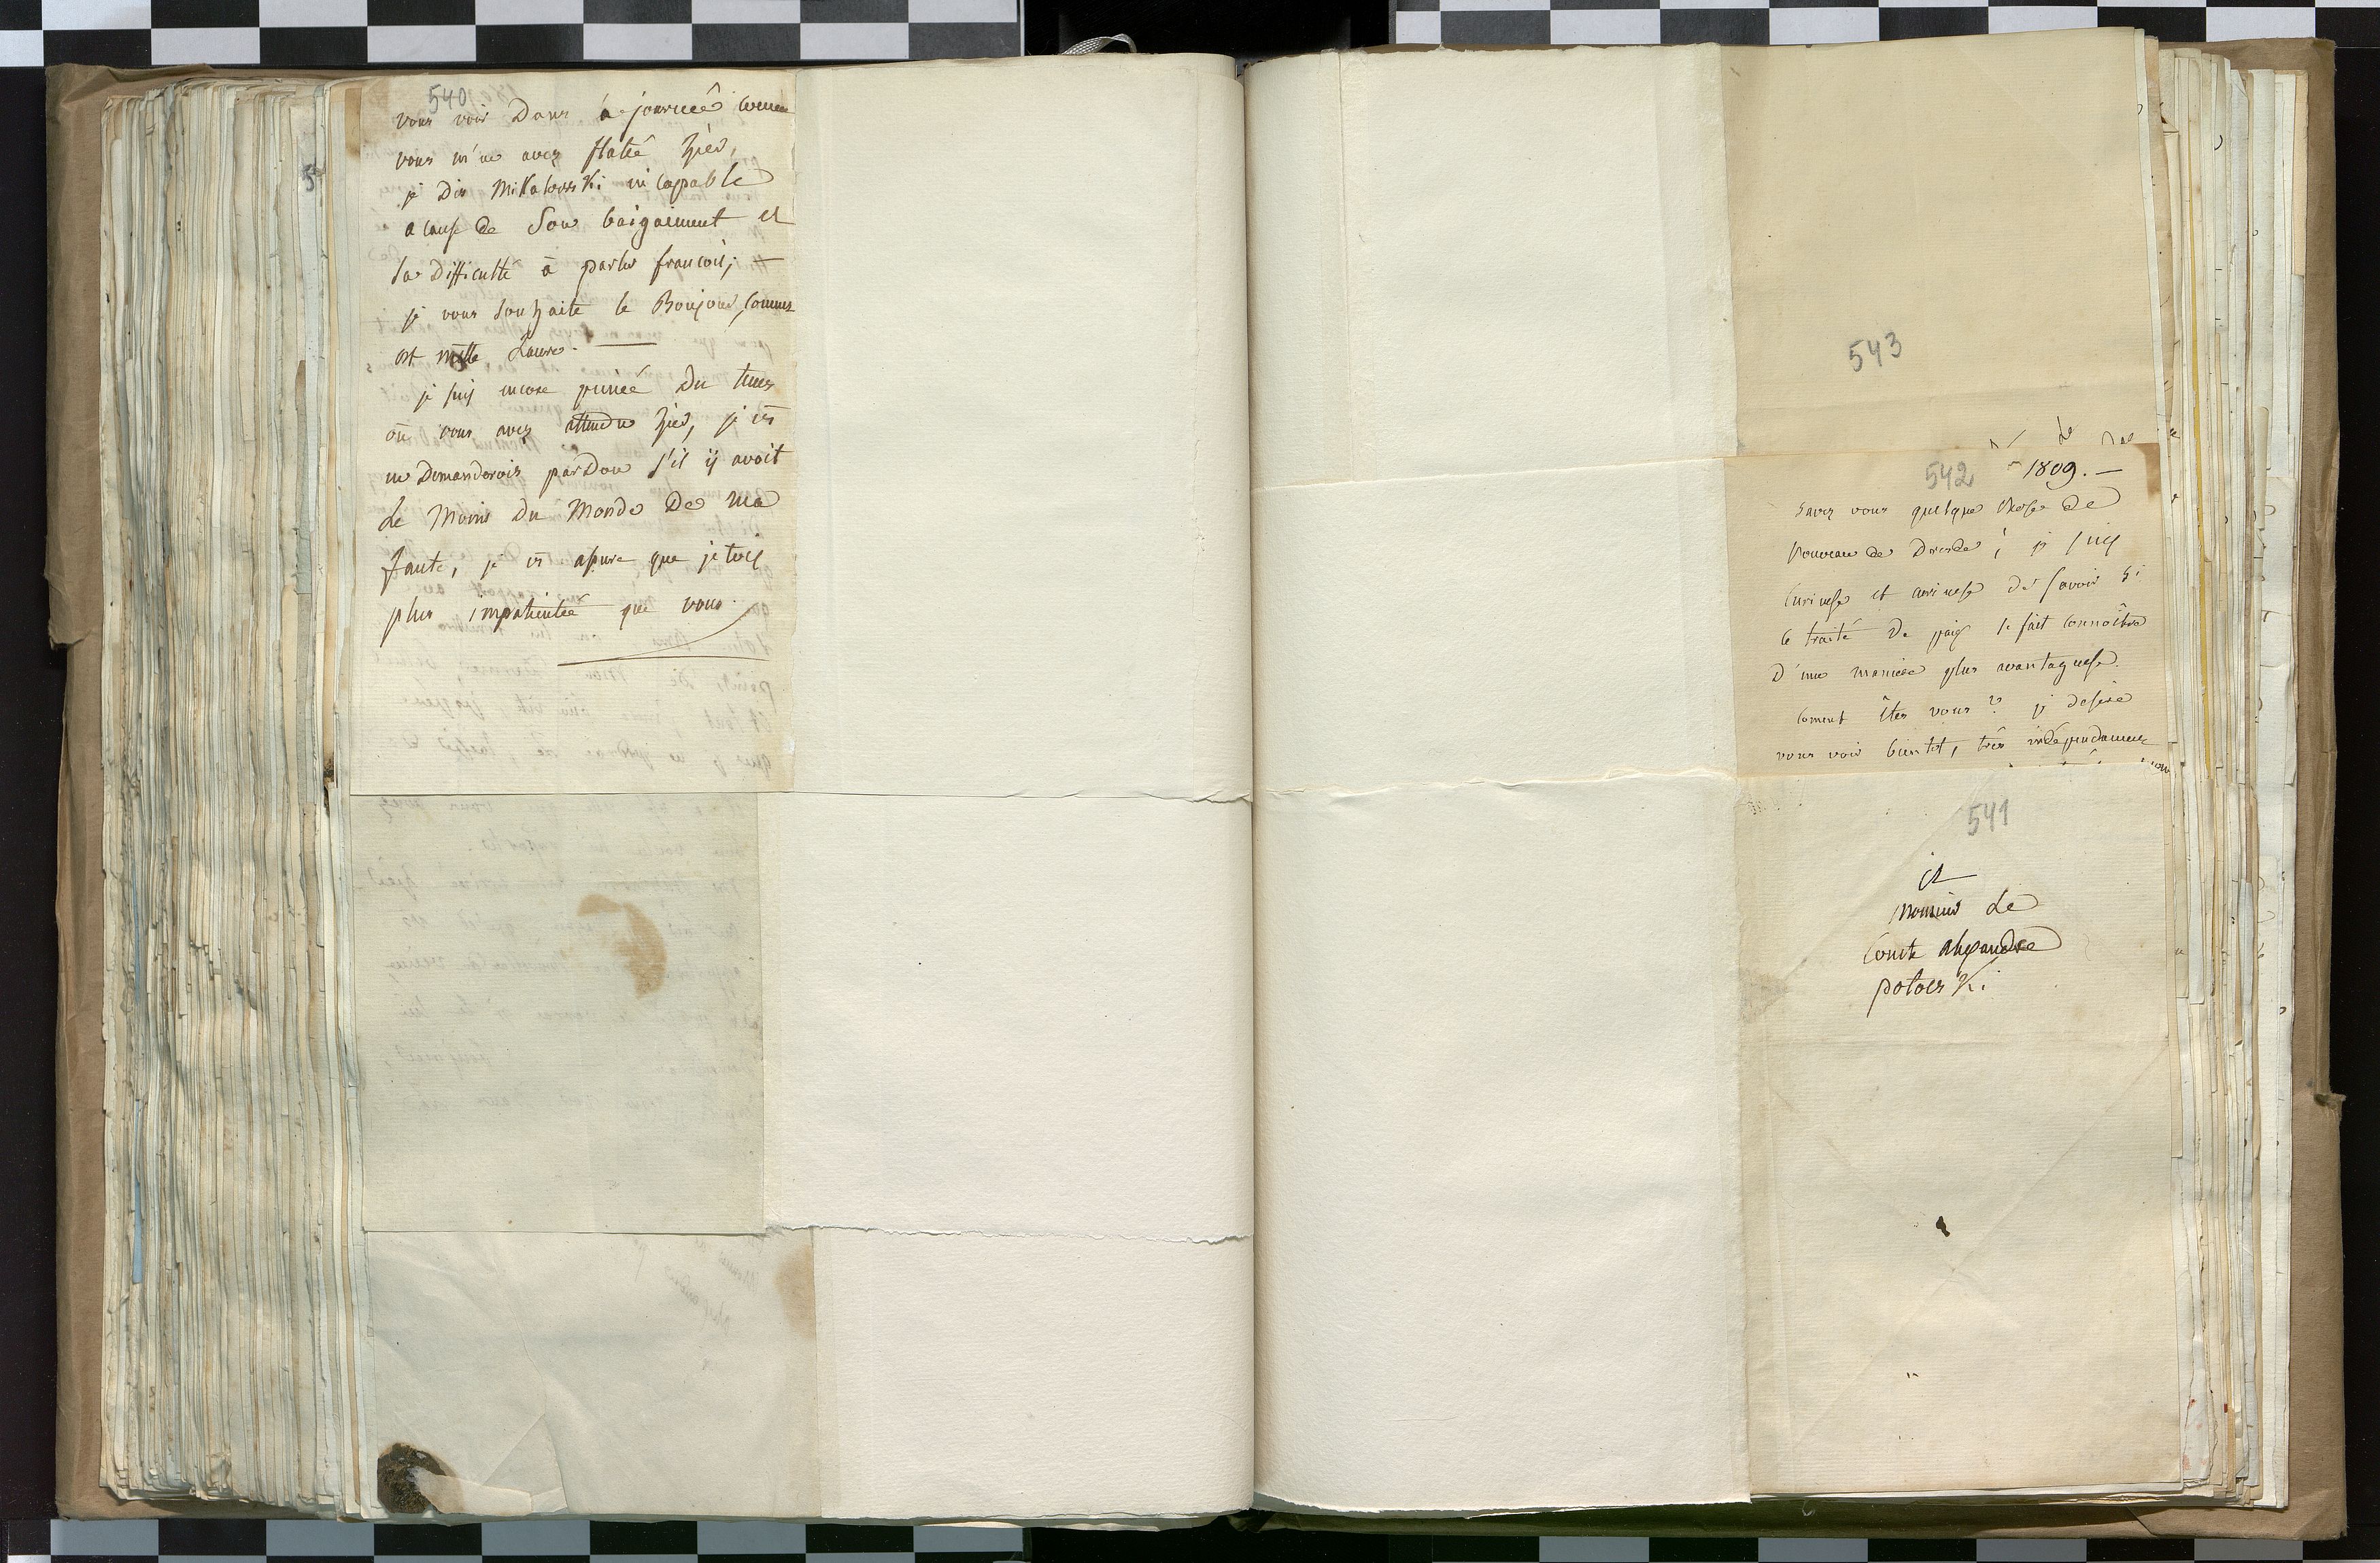 540
vous voir Dans la journeé comme
vous m'en avez flatté hier,
je Dis Mikatowski incapable
a cause de Son baigaiement et
sa Difficulté à parler francois; —
je vous souhaite le Bonjour, comment
est Mlle Laure. —
je suis encore peineé Du tems
où vous avez attendu hier, je vs
en Demanderois parDon s'il ij avoit
le Moins Du Monde De ma
faute, je vs assure que jetois
plus impatienteé que vous.
543
542
1809. —
savez vous quelque chose de
Nouveau de Dresde; je suis
curieuse et curieuse de savoir si
le traité De paix se fait connoître
D'une maniere plus avantageuse.
coment êtes vous? je desire
vous voir bientot, très indépendament
541
a
Monsieur Le
Comte alexandre
potocki